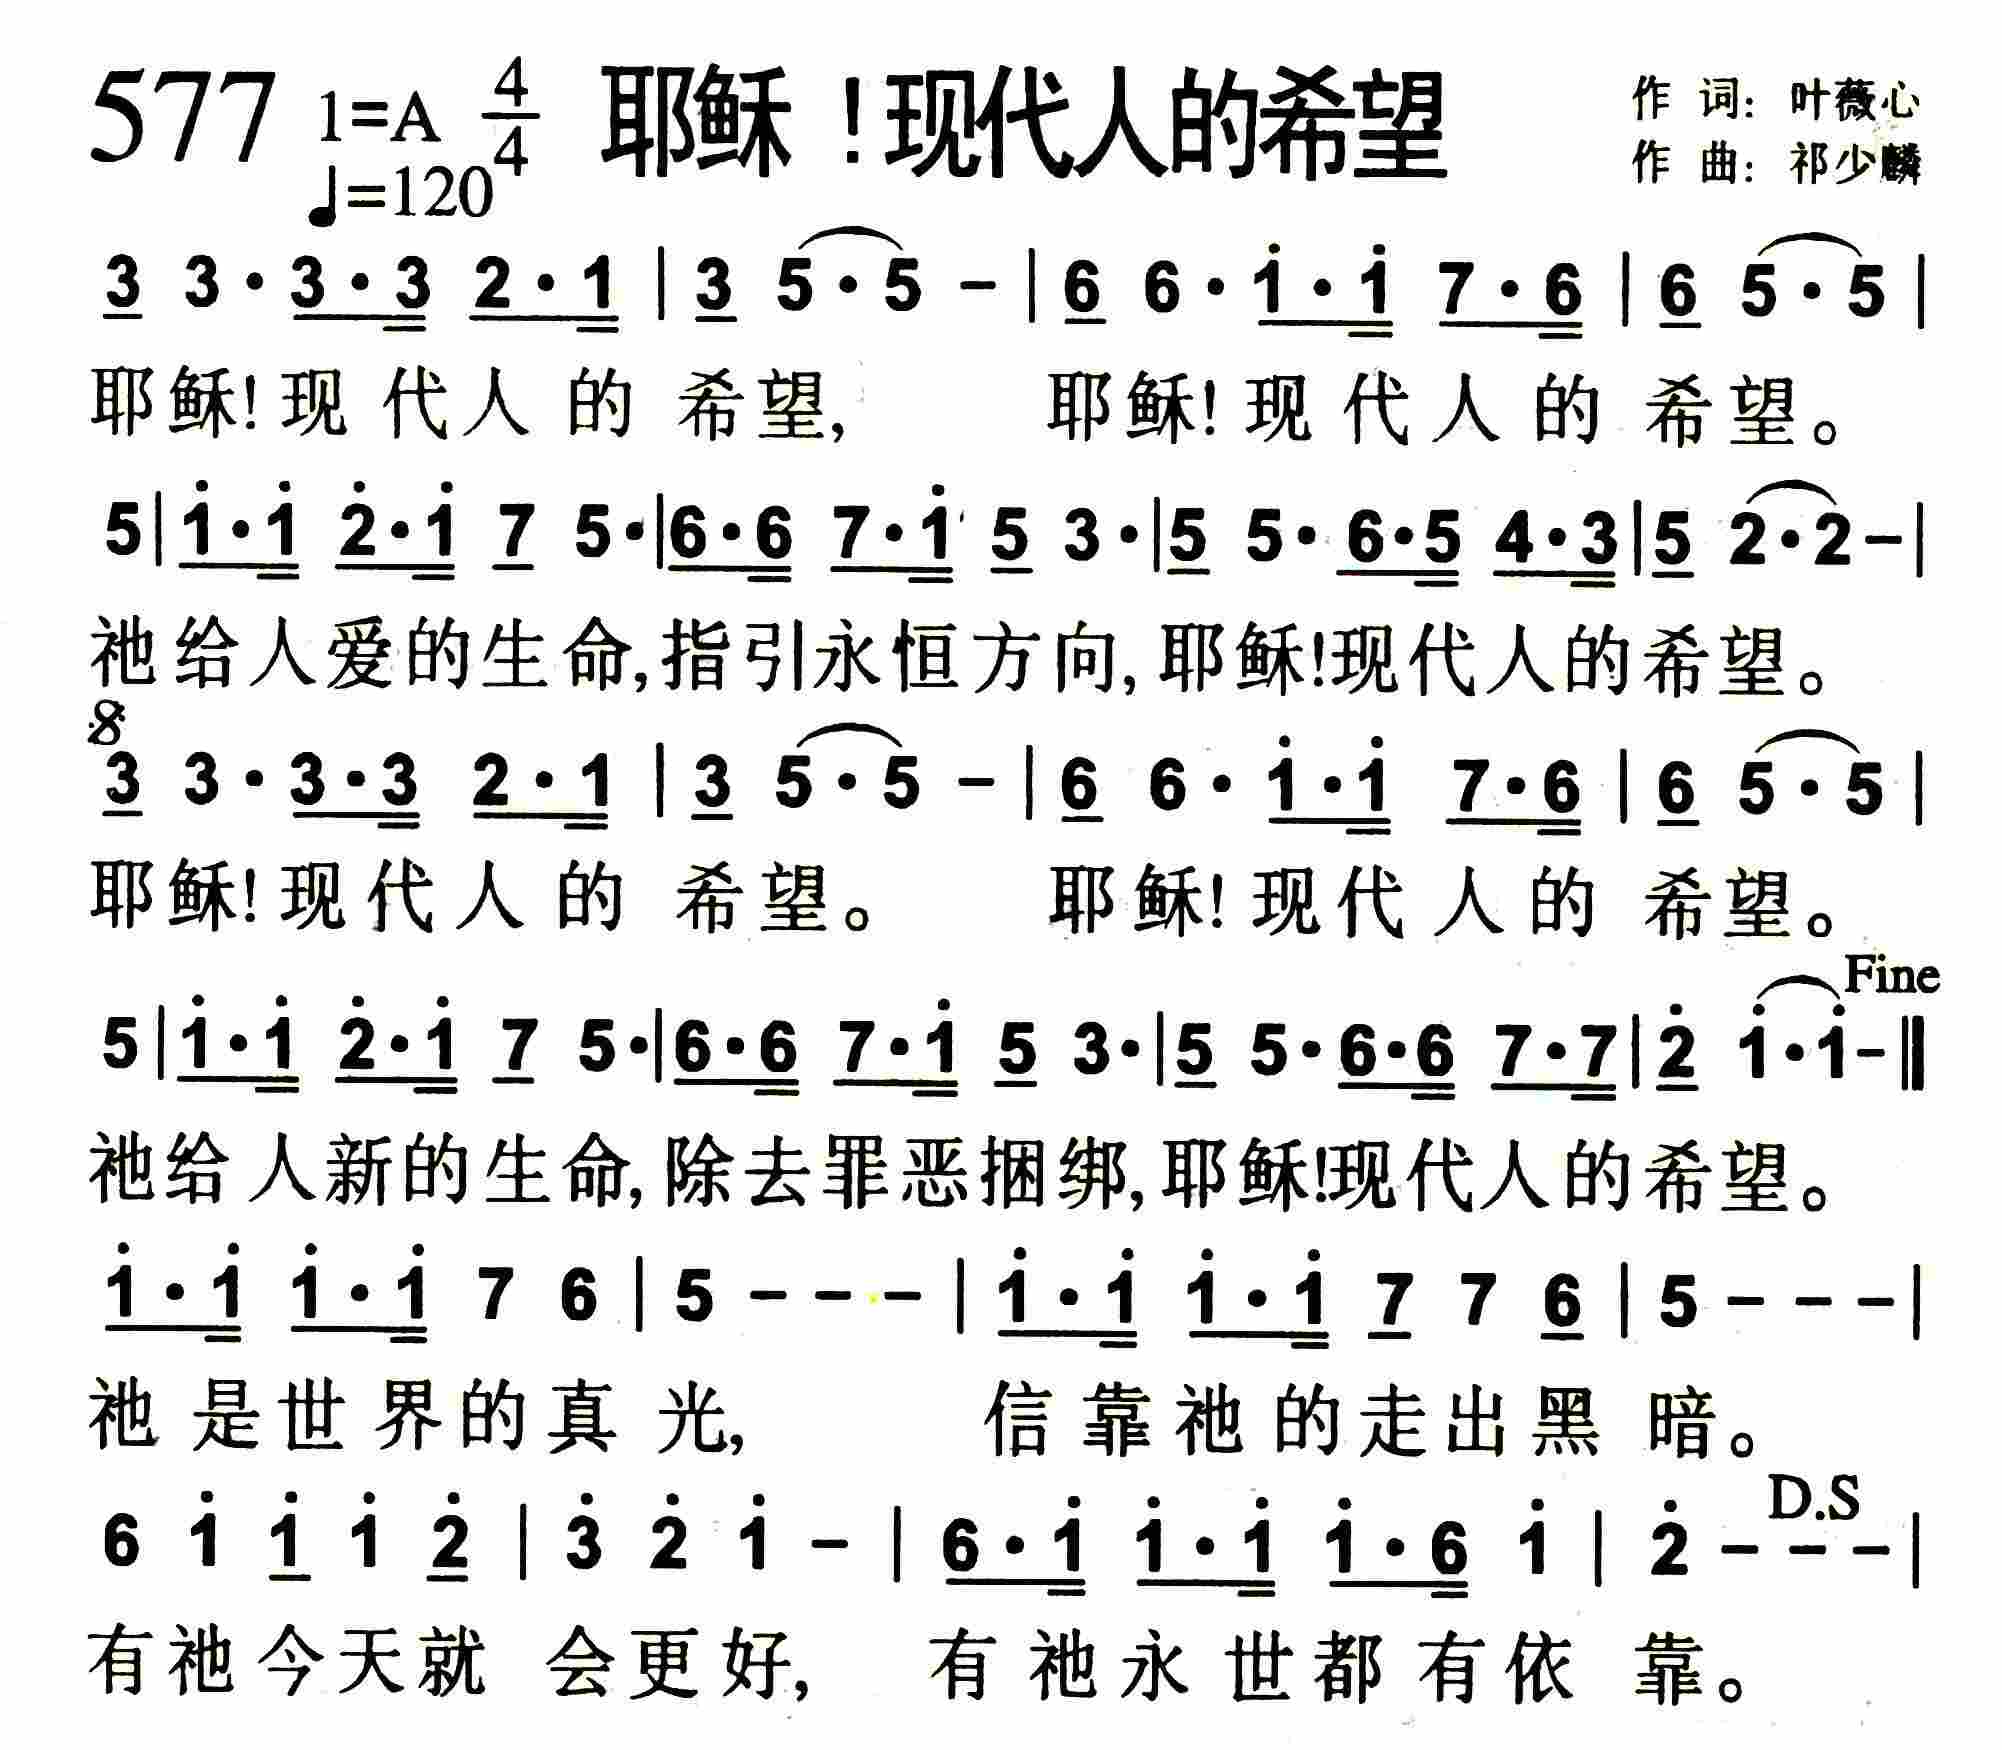 577 1=A 4/4 耶稣！现代人的希望 作 词：叶薇心
♩=120 作 曲：祁少麟
3 3·3·3 2·1 | 3 5·5 － | 6 6·1̇·1̇ 7·6 | 6 5·5 |
耶稣！现代人的希望， 耶稣！现代人的希望。
5 | 1̇·1̇ 2̇·1̇ 7 5· | 6·6 7·1̇ 5 3· | 5 5·6·5 4·3 | 5 2·2－ |
祂给人爱的生命，指引永恒方向，耶稣！现代人的希望。
𝄋
3 3·3·3 2·1 | 3 5·5 － | 6 6·1̇·1̇ 7·6 | 6 5·5 |
耶稣！现代人的希望。 耶稣！现代人的希望。
Fine
5 | 1̇·1̇ 2̇·1̇ 7 5· | 6·6 7·1̇ 5 3· | 5 5·6·6 7·7 | 2̇ 1̇·1̇－ ‖
祂给人新的生命，除去罪恶捆绑，耶稣！现代人的希望。
1̇·1̇ 1̇·1̇ 7 6 | 5 － － － | 1̇·1̇ 1̇·1̇ 7 7 6 | 5 － － － |
祂是世界的真光， 信靠祂的走出黑暗。
D.S
6 1̇ 1̇ 1̇ 2̇ | 3̇ 2̇ 1̇ － | 6·1̇ 1̇·1̇ 1̇·6 1̇ | 2̇ － － － |
有祂今天就会更好， 有祂永世都有依靠。